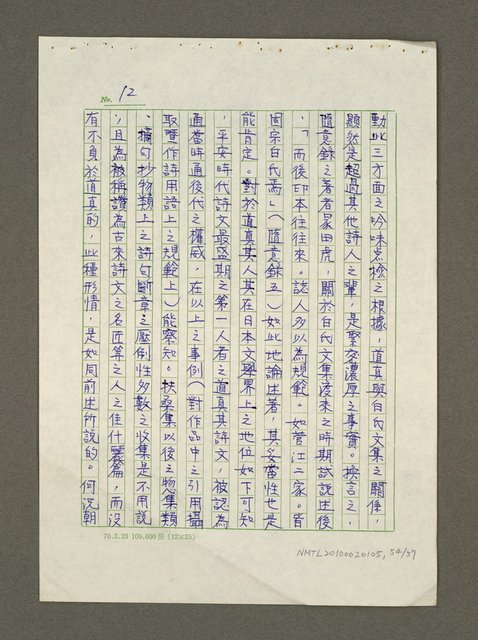 No. 12
動此三方面之吟味点檢之根據，道真與白氏文集之關係，
顯然是超過其他詩人之輩，是緊密濃厚之事實。換言之，
隨意錄之著者冢田虎，關於白氏文集度來之時期試說述後
，「而後印本往往來。誌人多以為規範。如菅江二家。皆
固宗白氏焉」（隨意錄五）如此地論述著，其妥當性也是
能肯定。對於道真其人其在日本文學界上之地位如下可知
，平安時代詩文最盛期之第一人者之道真其詩文，被認為
通當時通後代之權威，在以上之事例（對作品中之引用攝
取暨作詩用語上之規範上）能察知。扶桑集以後之總集類
，摘句抄物類上之詩句斷章之壓倒性多數之收集是不用說
，且為被稱讚為古來詩文之名匠等之人之佳什麗篇，而沒
有不負於道真的，此種形情，是如同前述所說的。何況朝
70.3.20 100,000份 (12×25)
NMTL20100020105, 54/57